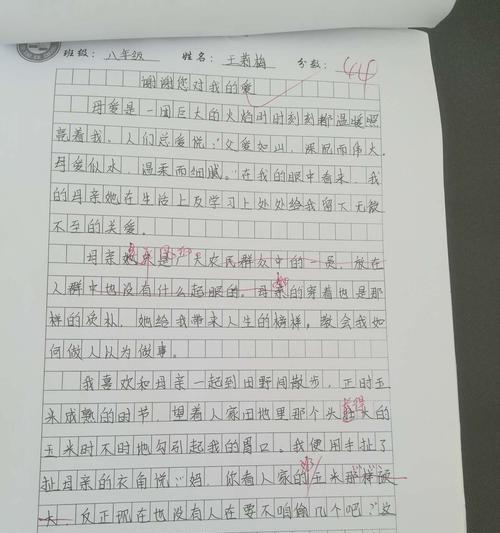 班级: 八年级 姓名: 王莉梅 分数: 44
谢谢您对我的爱
母爱是一团巨大的火焰时时刻刻都温暖照
亮着我。人们总爱说:"父爱如山,深沉而伟大。
母爱似水,温柔而细腻。"在我的眼中看来,我
的母亲她在生活上及学习上处处给我留下无微
不至的关爱。
母亲她是广大农民群众中的一员,放在
人群中也没有什么起眼的。母亲的穿着也是那
样的质朴,她给我带来人生的榜样。教会我如
何做人以为做事。
我喜欢和母亲一起到田野间散步,正时玉
米成熟的时节,望着人家田地里那个头大的
玉米时不时地勾引起我的胃口。我便用手扯了
扯母亲的衣角说:"妈,你看人家的玉米那样硕
大,反正现在也没有人在要不咱偷几个吧?"这